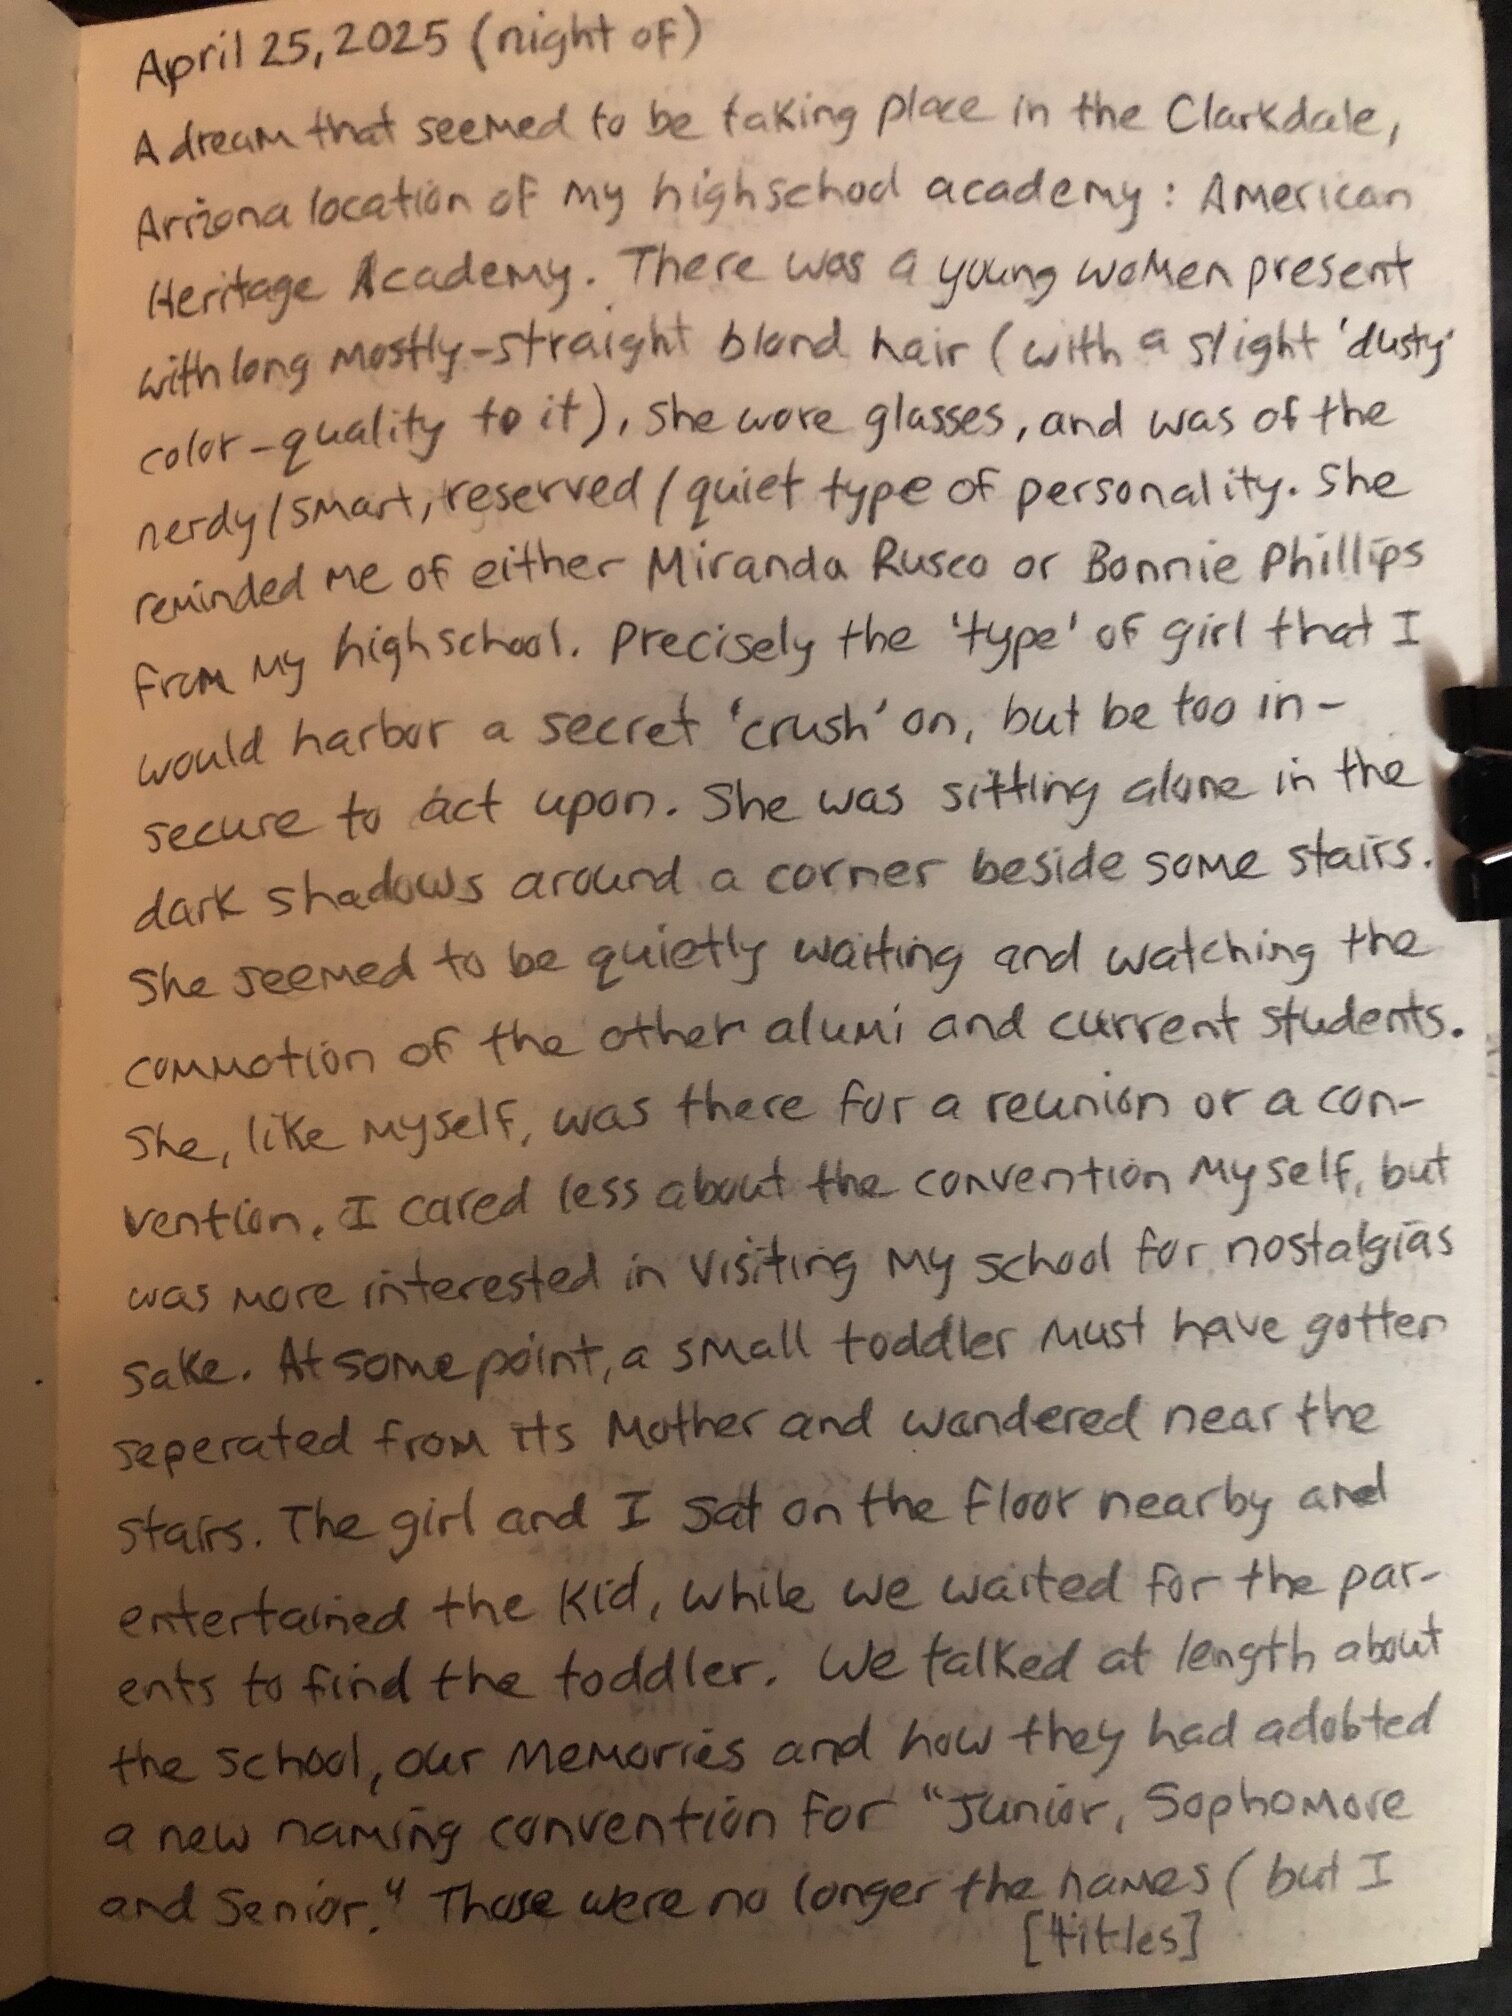 April 25, 2025 (night of)
A dream that seemed to be taking place in the Clarkdale,
Arizona location of my highschool academy: American
Heritage Academy. There was a young women present
with long mostly-straight blond hair (with a slight 'dusty'
color-quality to it), she wore glasses, and was of the
nerdy/smart, reserved/quiet type of personality. She
reminded me of either Miranda Rusco or Bonnie Phillips
from my highschool. Precisely the 'type' of girl that I
would harbor a secret 'crush' on, but be too in-
secure to act upon. She was sitting alone in the
dark shadows around a corner beside some stairs.
She seemed to be quietly waiting and watching the
commotion of the other alumi and current students.
She, like myself, was there for a reunion or a con-
vention. I cared less about the convention myself, but
was more interested in visiting my school for nostalgias
sake. At some point, a small toddler must have gotten
seperated from its mother and wandered near the
stairs. The girl and I sat on the floor nearby and
entertained the kid, while we waited for the par-
ents to find the toddler. We talked at length about
the school, our memories and how they had adobted
a new naming convention for "Junior, Sophomore
and Senior." Those were no longer the names (but I
[titles]